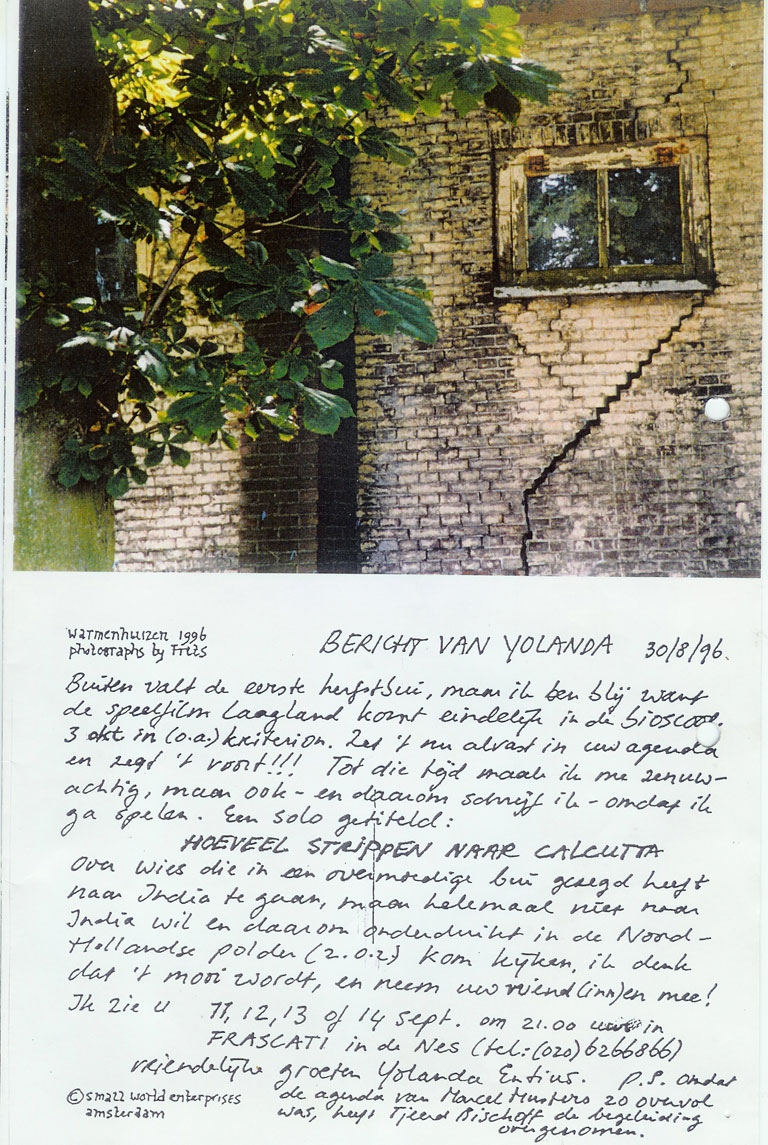 Warmenhuizen 1996
photographs by Frits
BERICHT VAN YOLANDA 30/8/96.
Buiten valt de eerste herfstbui, maar ik ben blij want
de speelfilm Laagland komt eindelijk in de bioscoop.
3 okt in (o.a.) Kriterion. Zet 't nu alvast in uw agenda
en zegt 't voort!!! Tot die tijd maak ik me zenuw-
achtig, maar ook - en daarom schrijf ik - omdat ik
ga spelen. Een solo getiteld:
HOEVEEL STRIPPEN NAAR CALCUTTA
Over Wies die in een overmoedige bui gezegd heeft
naar India te gaan, maar helemaal niet naar
India wil en daarom onderduikt in de Noord-
Hollandse polder (z.o.z) Kom kijken, ik denk
dat 't mooi wordt, en neem uw vriend(inn)en mee!
Ik zie u 11, 12, 13 of 14 sept. om 21.00 in
FRASCATI in de Nes (tel: (020) 6266866)
vriendelijke groeten Yolanda Entius.
P.S. omdat
de agenda van Marcel Musters zo overvol
was, heeft Tjeerd Bischoff de begeleiding
overgenomen.
© small world enterprises
amsterdam